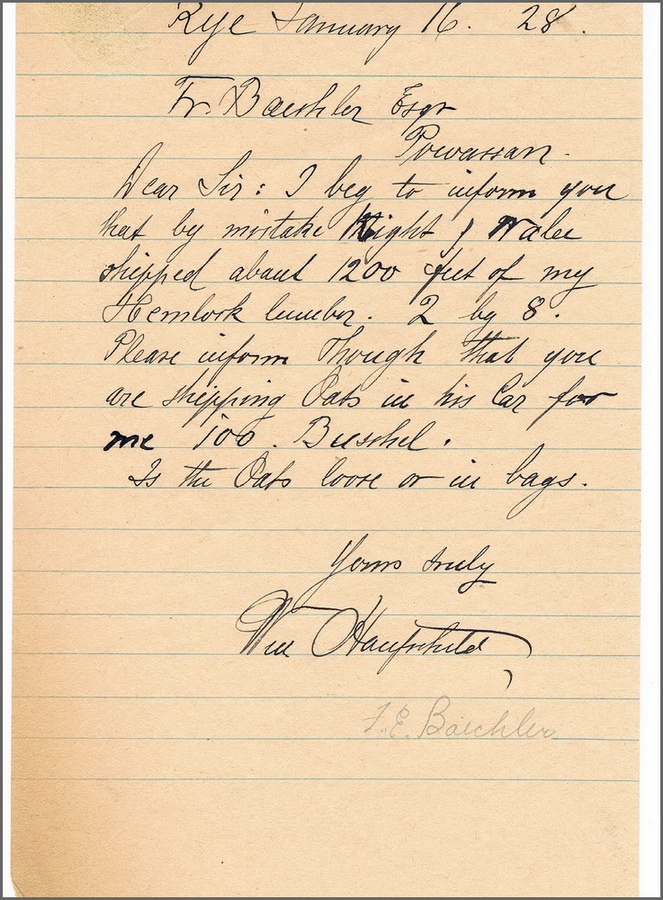 Rye January 16. 28.
Fr. Baechler Esqr
Powassan.
Dear Sir: I beg to inform you
that by mistake Might
shipped about 1200 feet of my
Hemlock lumber. 2 by 8.
Please inform Though that you
are shipping Oats in his Car for
me 100. Buschel.
Is the Oats loose or in bags.
Yours truly
Will Haufschild
F. E. Baechler